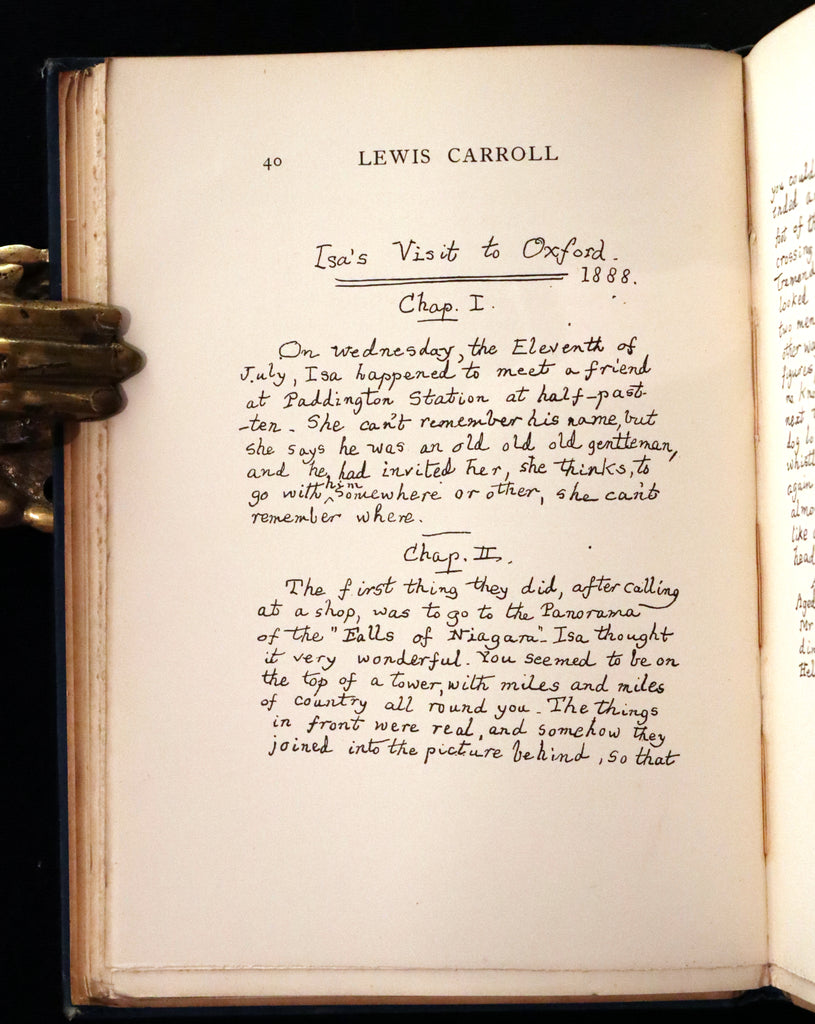 40 LEWIS CARROLL
Isa's Visit to Oxford.
1888.
Chap. I.
On Wednesday, the Eleventh of
July, Isa happened to meet a friend
at Paddington Station at half-past-
-ten. She can't remember his name, but
she says he was an old old old gentleman,
and he had invited her, she thinks, to
go with him somewhere or other, she can't
remember where.
Chap. II.
The first thing they did, after calling
at a shop, was to go to the Panorama
of the "Falls of Niagara". Isa thought
it very wonderful. You seemed to be on
the top of a tower, with miles and miles
of country all round you. The things
in front were real, and somehow they
joined into the picture behind, so that
you could
ended
of th
crossing
looked
two men
other wa
figures
next,
dog
again
almo
like
head
Aged
Mr